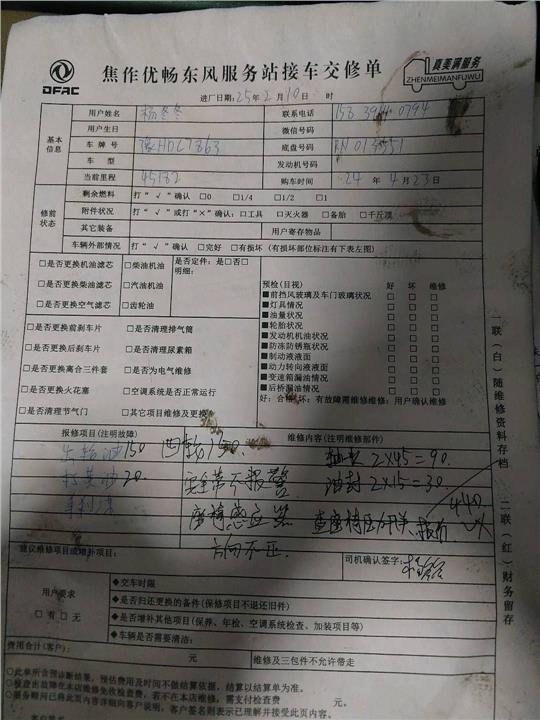 DFAC
焦作优畅东风服务站接车交修单
真美满服务
ZHENMEIMANFUWU
进厂日期:25年2月10日 时
基本信息
用户姓名 杨冬冬 联系电话
用户生日 微信号码
车牌号 豫HDC7863 底盘号码 RN013551
车型 发动机号码
当前里程 45182 购车时间 24年4月23日
修前状态
剩余燃料 打“√”确认 □0 □1/4 □1/2 □1
附件状况 打“√”或打“×”确认: □工具 □灭火器 □备胎 □千斤顶
其它装备 用户寄存物品
车辆外部情况 打“√”确认 □完好 □有损坏 (有损坏部位标注有下表左图)
□是否更换机油滤芯 □柴油机油 是否定件: 是□否□
明细:
□是否更换柴油滤芯 □汽油机油
□是否更换空气滤芯 □齿轮油
□是否更换前刹车片 □是否清理排气筒
□是否更换后刹车片 □是否清理尿素箱
□是否更换离合三件套 □是否为电气维修
□是否更换火花塞 □空调系统是否正常运行
□是否清理节气门 □其它项目维修及更换
预检(目视) 好 坏 维修
■前挡风玻璃及车门玻璃状况 □ □ □
■灯具情况 □ □ □
■油量状况 □ □ □
■轮胎状况 □ □ □
■发动机机油状况 □ □ □
■防冻防锈瓶状况 □ □ □
■制动液液面 □ □ □
■动力转向液液面 □ □ □
■变速箱漏油情况 □ □ □
■后桥漏油情况 □ □ □
好: 合格 坏: 有故障需维修 维修: 用户确认维修
报修项目(注明故障) 维修内容(注明维修部件)
150 四轮150. 2X45=90.
打黄油20. 安全带不报警 油封 2X15=30.
手刹 座椅感应器 查座椅压力开关 440
方向不正.
建议维修项目或增补项目: 司机确认签字:
用户要求
□有 □无
◆交车时限
◆是否归还更换的备件(保修项目不退还旧件)
◆是否增补其他项目(保养、年检、空调系统检查、加装项目等)
◆车辆是否需要清洁:
费用合计(客户): 元 维修及三包件不允许带走
○此单所含预诊断结果,预估费用及时间不做结算依据,结算以结算单为准。
○检查出故障在本店维修免收检查费,若不在本店维修,需支付检查费 元。
○服务顾问已将此页内容详细向客户说明。客户签名则表示已理解并接受此页内容。
一联(白)随维修资料存档
二联(红)财务留存